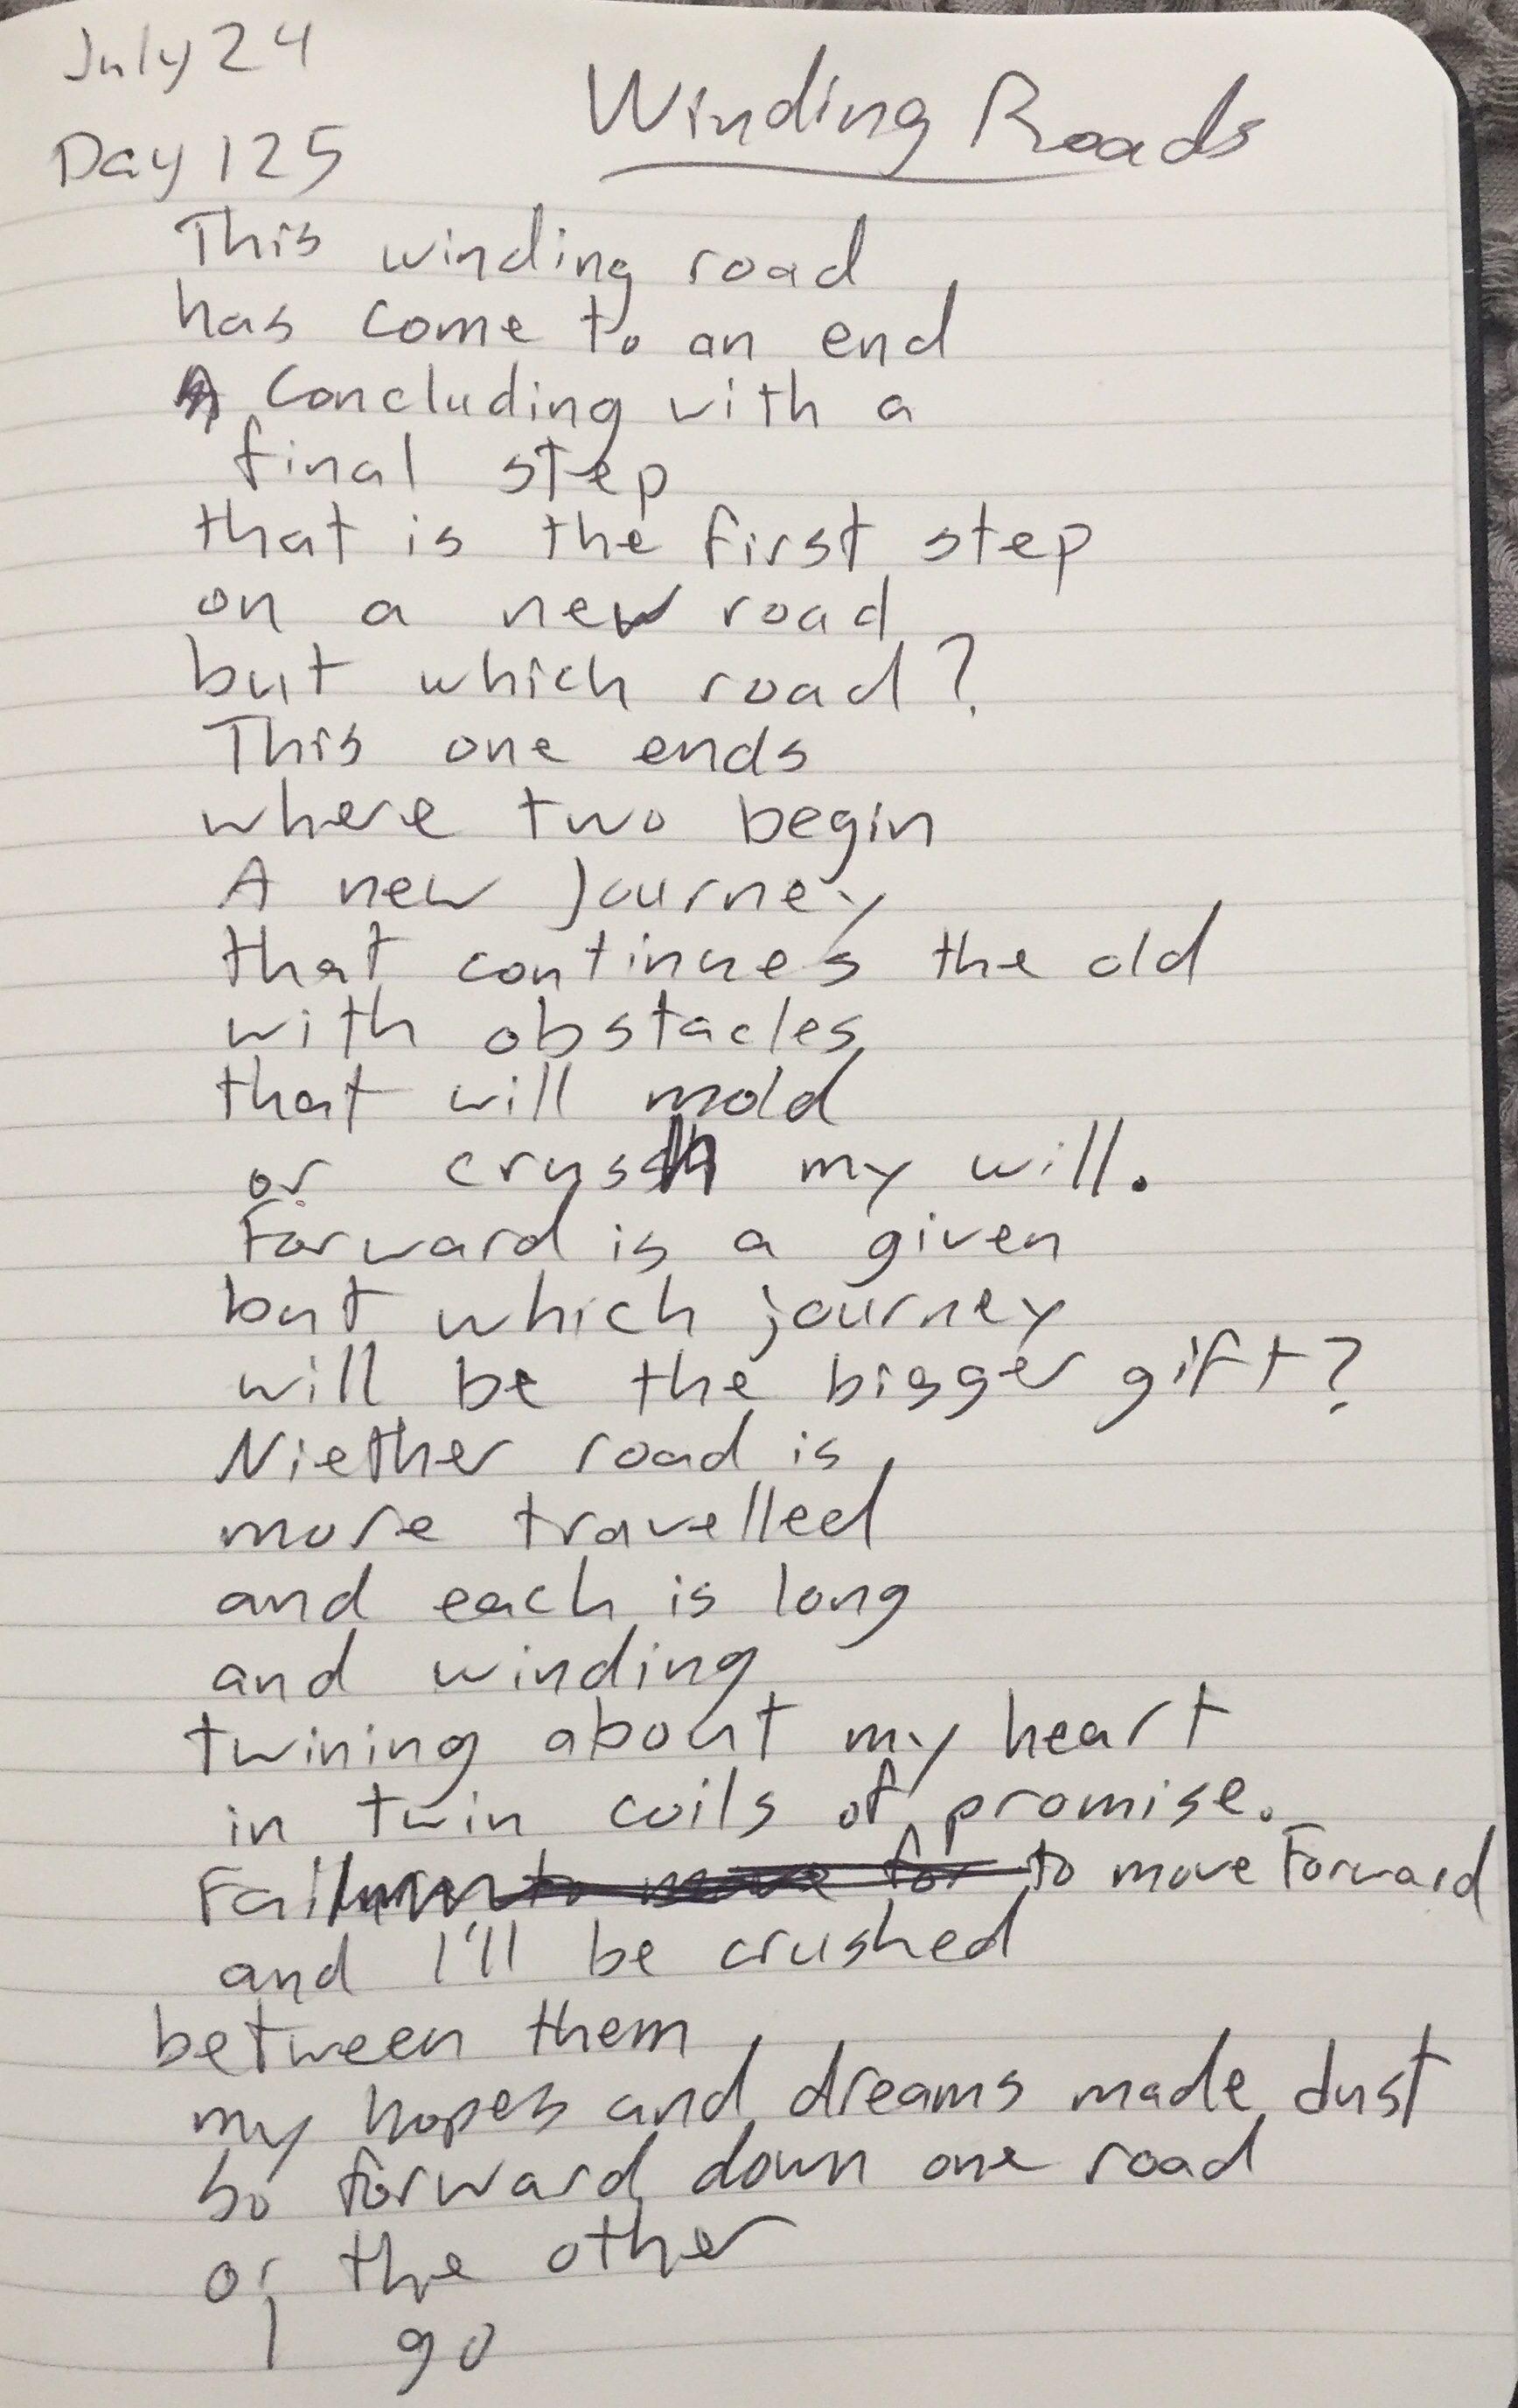 July 24
Winding Roads
Day 125
This winding road
has come to an end
Concluding with a
final step
that is the first step
on a new road
but which road?
This one ends
where two begin
A new journey
that continues the old
with obstacles
that will mold
or crush my will.
Forward is a given
but which journey
will be the bigger gift?
Niether road is
more travelled
and each is long
and winding
twining about my heart
in twin coils of promise.
Fail to move Forward
and I'll be crushed
between them
my hopes and dreams made dust
so forward down one road
or the other
I go